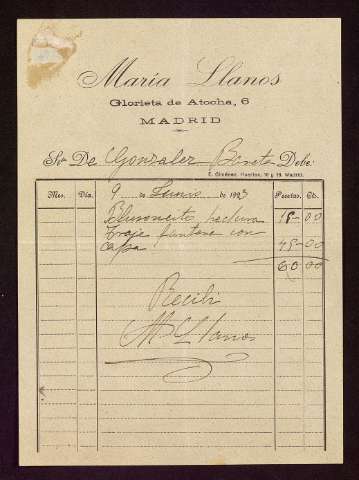 María Llanos
Glorieta de Atocha, 6
MADRID
Sra De Gonzalez Debe:
E. Giménez, Huertas, 16 y 18. Madrid.
Mes. Día. 9 de Junio de 1923 Pesetas. Cts.
hechura 15-00
Traje fantasia con
capa 45-00
60 00
Recibi
M Llanos